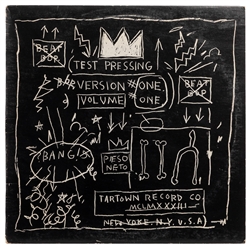 BEAT
BOP
TEST PRESSING
VERSION ONE
VOLUME ONE
BEAT
BOP
BANG!
PESO
NETO
TARTOWN RECORD CO.
MCMLXXXIII
NEW YORK, N.Y. U.S.A